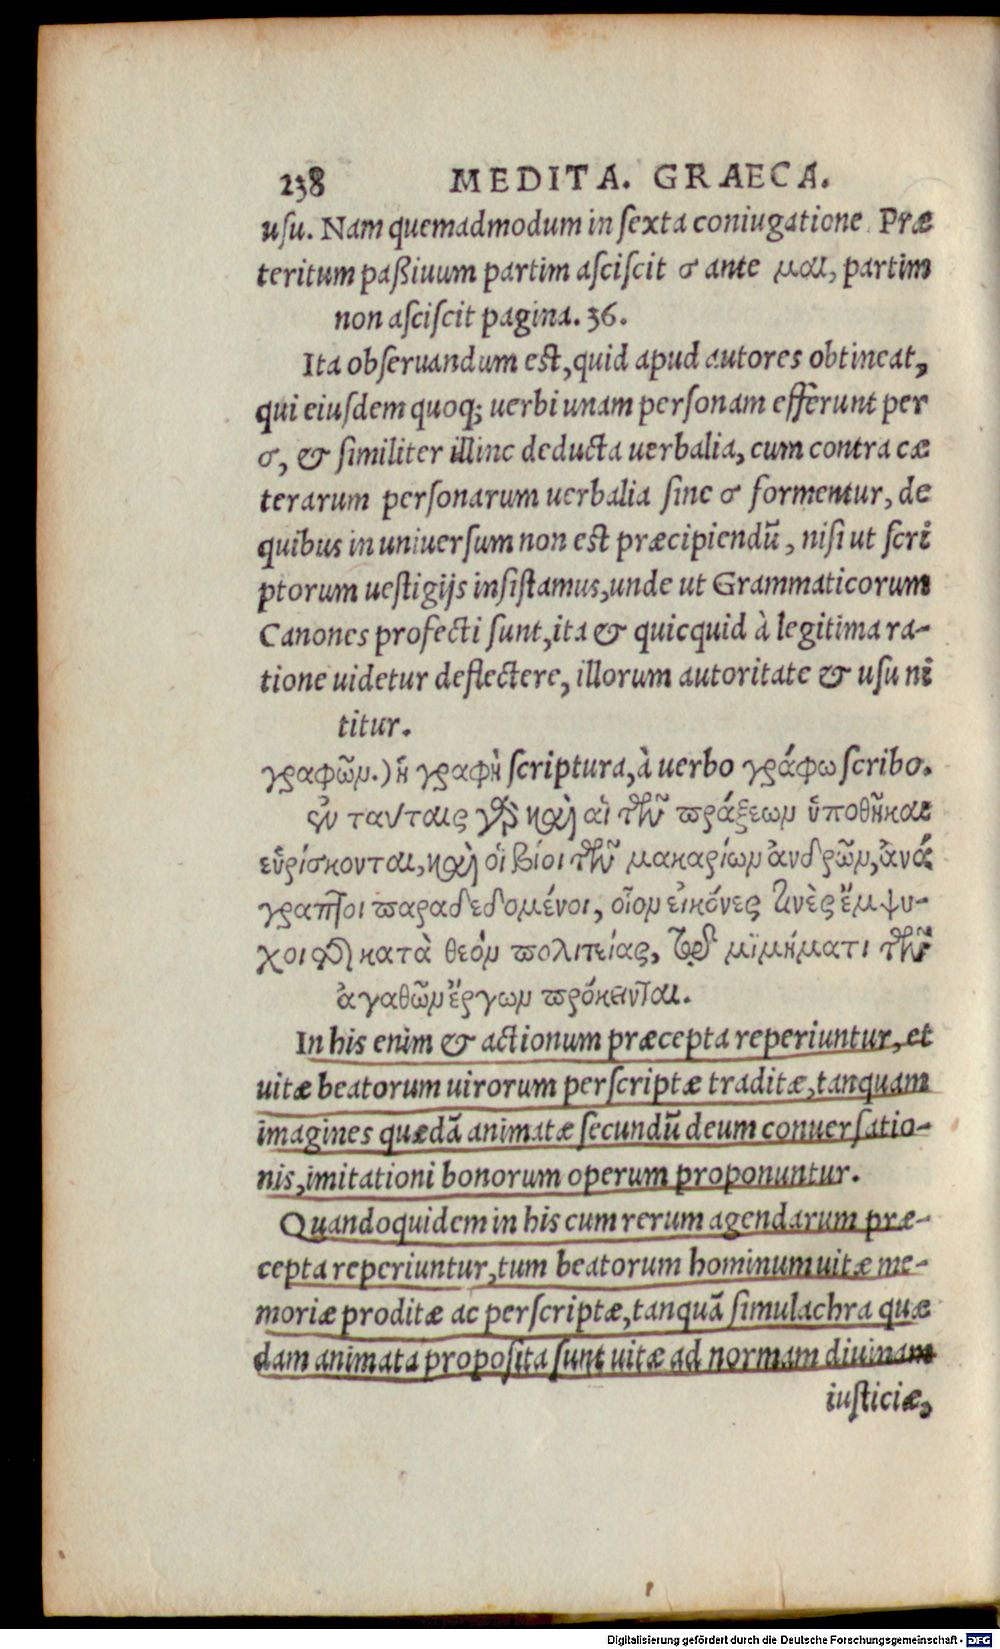 238 MEDITA. GRAECA.
usu. Nam quemadmodum in sexta coniugatione Præ
teritum paßiuum partim asciscit σ ante μαι, partim
non asciscit pagina. 36.
Ita obseruandum est, quid apud autores obtineat,
qui eiusdem quoq; uerbi unam personam efferunt per
σ, & similiter illinc deducta uerbalia, cum contra cæ
terarum personarum uerbalia sine σ formentur, de
quibus in uniuersum non est præcipiendũ, nisi ut scri
ptorum uestigijs insistamus, unde ut Grammaticorum
Canones profecti sunt, ita & quicquid à legitima ra-
tione uidetur deflectere, illorum autoritate & usu ni
titur.
γραφῶν.) ἡ γραφὴ scriptura, à uerbo γράφω scribo.
ἐν ταύταις γὰρ καὶ αἱ τῶν πράξεων ὑποθῆκαι
εὑρίσκονται, καὶ οἱ βίοι τῶν μακαρίων ἀνδρῶν, ἀνά
γραπτοι παραδεδομένοι, οἷον εἰκόνες τινὲς ἔμψυ-
χοι τῆς κατὰ θεόν πολιτείας, τῷ μιμήματι τῶν
ἀγαθῶν ἔργων πρόκεινται.
In his enim & actionum præcepta reperiuntur, et
uitæ beatorum uirorum perscriptæ traditæ, tanquam
imagines quædã animatæ secundũ deum conuersatio-
nis, imitationi bonorum operum proponuntur.
Quandoquidem in his cum rerum agendarum præ-
cepta reperiuntur, tum beatorum hominum uitæ me-
moriæ proditæ ac perscriptæ, tanquã simulachra quæ
dam animata proposita sunt uitæ ad normam diuinam
iusticiæ,
Digitalisierung gefördert durch die Deutsche Forschungsgemeinschaft - DFG